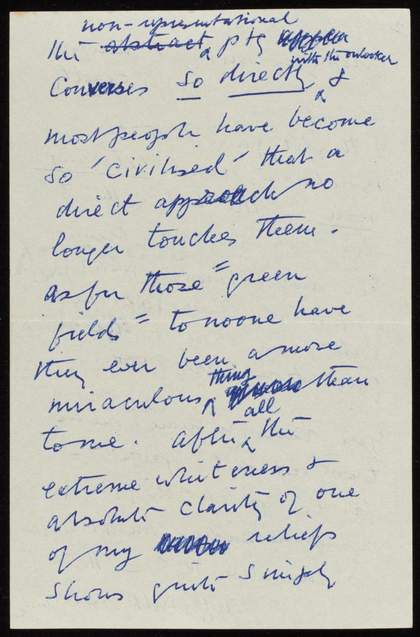 non-representational
the abstract ptg
with the onlooker
converses so directly &
most people have become
so 'civilised' that a
direct approach no
longer touches them.
as for those "green
fields" to noone have
they ever been a more
miraculous thing than
to me. after all the
extreme whiteness &
absolute clarity of one
of my reliefs
shows quite simply